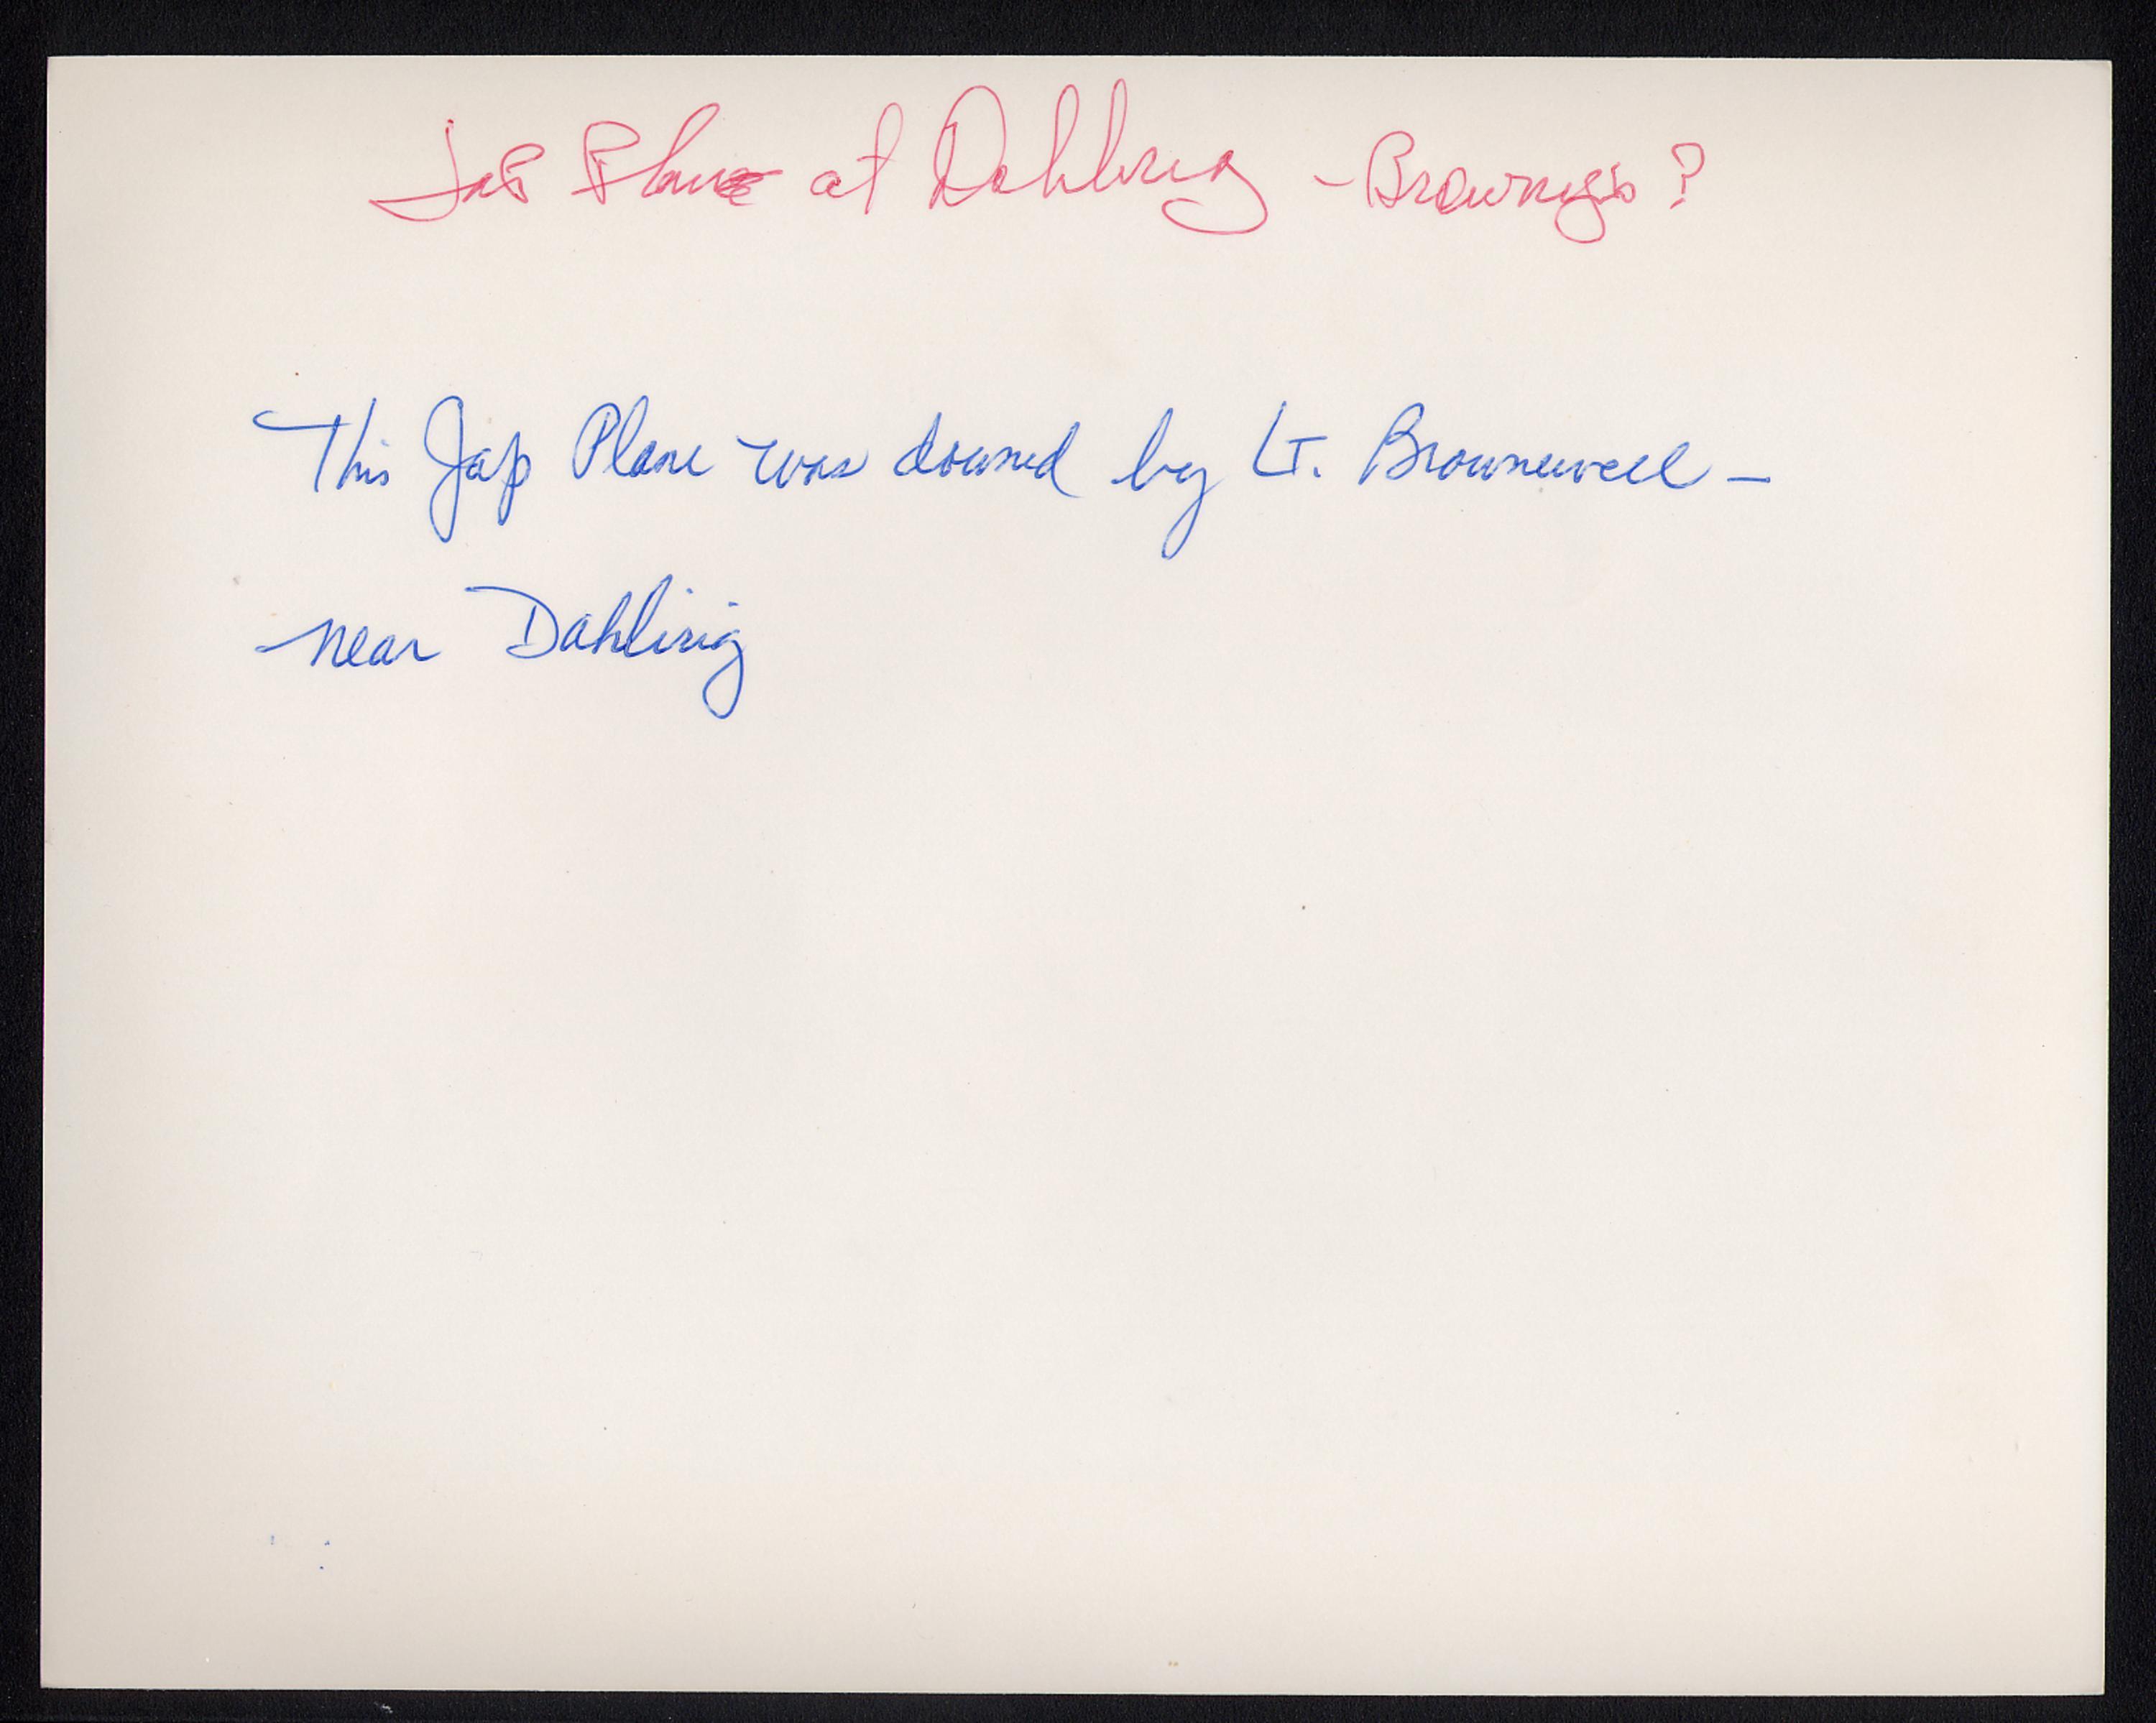 Jap Plane at Dahlirig - Browning's?
This Jap Plane was downed by Lt. Brownewell -
near Dahlirig